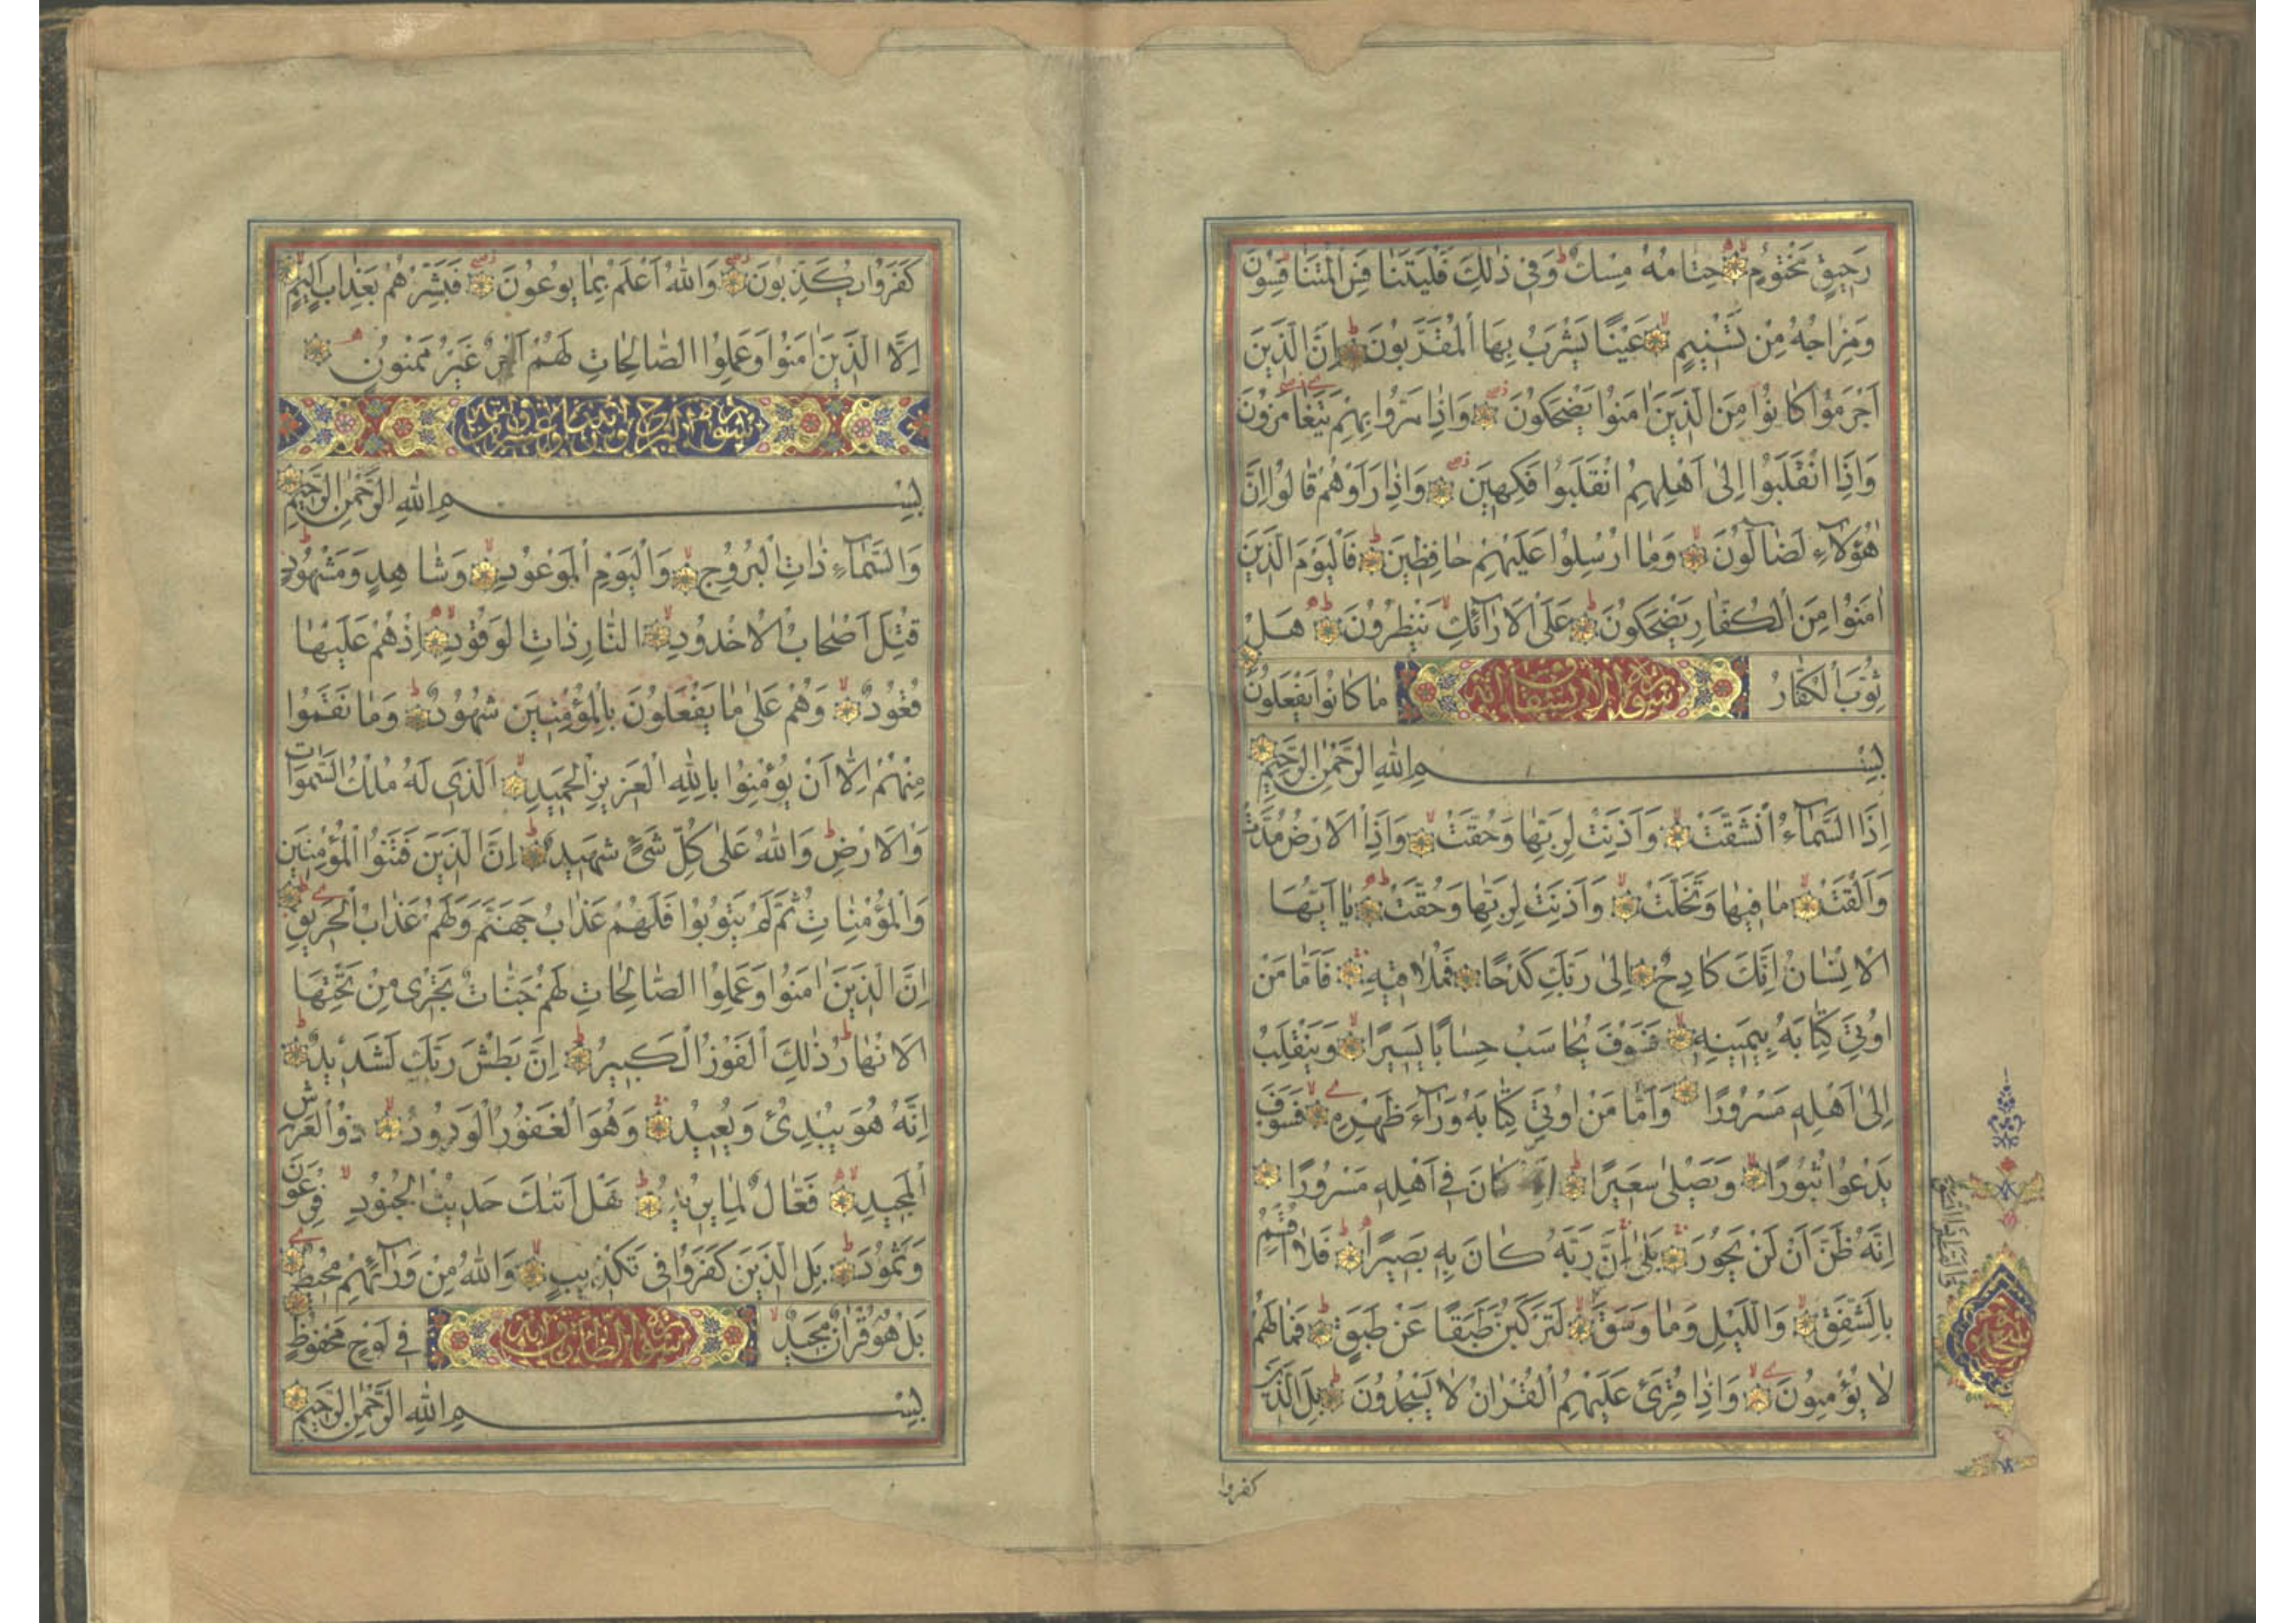 رَحِيقٍ مَخْتُومٍ خِتَامُهُ مِسْكٌ وَفِي ذٰلِكَ فَلْيَتَنَافَسِ الْمُتَنَافِسُونَ
وَمِزَاجُهُ مِنْ تَسْنِيمٍ عَيْنًا يَشْرَبُ بِهَا الْمُقَرَّبُونَ اِنَّ الَّذِينَ
اَجْرَمُوا كَانُوا مِنَ الَّذِينَ اٰمَنُوا يَضْحَكُونَ وَاِذَا مَرُّوا بِهِمْ يَتَغَامَزُونَ
وَاِذَا انْقَلَبُوا اِلٰى اَهْلِهِمُ انْقَلَبُوا فَكِهِينَ وَاِذَا رَاَوْهُمْ قَالُوا اِنَّ
هٰؤُلَآءِ لَضَآلُّونَ وَمَا اُرْسِلُوا عَلَيْهِمْ حَافِظِينَ فَالْيَوْمَ الَّذِينَ
اٰمَنُوا مِنَ الْكُفَّارِ يَضْحَكُونَ عَلَى الْاَرَآئِكِ يَنْظُرُونَ هَلْ
ثُوِّبَ الْكُفَّارُ مَا كَانُوا يَفْعَلُونَ
بِسْمِ اللّٰهِ الرَّحْمٰنِ الرَّحِيمِ
اِذَا السَّمَآءُ انْشَقَّتْ وَاَذِنَتْ لِرَبِّهَا وَحُقَّتْ وَاِذَا الْاَرْضُ مُدَّتْ
وَاَلْقَتْ مَا فِيهَا وَتَخَلَّتْ وَاَذِنَتْ لِرَبِّهَا وَحُقَّتْ يَا اَيُّهَا
الْاِنْسَانُ اِنَّكَ كَادِحٌ اِلٰى رَبِّكَ كَدْحًا فَمُلَاقِيهِ فَاَمَّا مَنْ
اُوتِيَ كِتَابَهُ بِيَمِينِهِ فَسَوْفَ يُحَاسَبُ حِسَابًا يَسِيرًا وَيَنْقَلِبُ
اِلٰى اَهْلِهِ مَسْرُورًا وَاَمَّا مَنْ اُوتِيَ كِتَابَهُ وَرَآءَ ظَهْرِهِ فَسَوْفَ
يَدْعُوا ثُبُورًا وَيَصْلٰى سَعِيرًا اِنَّهُ كَانَ فِي اَهْلِهِ مَسْرُورًا
اِنَّهُ ظَنَّ اَنْ لَنْ يَحُورَ بَلٰى اِنَّ رَبَّهُ كَانَ بِهِ بَصِيرًا فَلَا اُقْسِمُ
بِالشَّفَقِ وَاللَّيْلِ وَمَا وَسَقَ لَتَرْكَبُنَّ طَبَقًا عَنْ طَبَقٍ فَمَا لَهُمْ
لَا يُؤْمِنُونَ وَاِذَا قُرِئَ عَلَيْهِمُ الْقُرْاٰنُ لَا يَسْجُدُونَ بَلِ الَّذِينَ
كفروا
كَفَرُوا يُكَذِّبُونَ وَاللّٰهُ اَعْلَمُ بِمَا يُوعُونَ فَبَشِّرْهُمْ بِعَذَابٍ اَلِيمٍ
اِلَّا الَّذِينَ اٰمَنُوا وَعَمِلُوا الصَّالِحَاتِ لَهُمْ اَجْرٌ غَيْرُ مَمْنُونٍ
سورة البروج
بِسْمِ اللّٰهِ الرَّحْمٰنِ الرَّحِيمِ
وَالسَّمَآءِ ذَاتِ الْبُرُوجِ وَالْيَوْمِ الْمَوْعُودِ وَشَاهِدٍ وَمَشْهُودٍ
قُتِلَ اَصْحَابُ الْاُخْدُودِ النَّارِ ذَاتِ الْوَقُودِ اِذْ هُمْ عَلَيْهَا
قُعُودٌ وَهُمْ عَلٰى مَا يَفْعَلُونَ بِالْمُؤْمِنِينَ شُهُودٌ وَمَا نَقَمُوا
مِنْهُمْ اِلَّا اَنْ يُؤْمِنُوا بِاللّٰهِ الْعَزِيزِ الْحَمِيدِ الَّذِي لَهُ مُلْكُ السَّمٰوَاتِ
وَالْاَرْضِ وَاللّٰهُ عَلٰى كُلِّ شَيْءٍ شَهِيدٌ اِنَّ الَّذِينَ فَتَنُوا الْمُؤْمِنِينَ
وَالْمُؤْمِنَاتِ ثُمَّ لَمْ يَتُوبُوا فَلَهُمْ عَذَابُ جَهَنَّمَ وَلَهُمْ عَذَابُ الْحَرِيقِ
اِنَّ الَّذِينَ اٰمَنُوا وَعَمِلُوا الصَّالِحَاتِ لَهُمْ جَنَّاتٌ تَجْرِى مِنْ تَحْتِهَا
الْاَنْهَارُ ذٰلِكَ الْفَوْزُ الْكَبِيرُ اِنَّ بَطْشَ رَبِّكَ لَشَدِيدٌ
اِنَّهُ هُوَ يُبْدِئُ وَيُعِيدُ وَهُوَ الْغَفُورُ الْوَدُودُ ذُو الْعَرْشِ
الْمَجِيدِ فَعَّالٌ لِمَا يُرِيدُ هَلْ اَتٰىكَ حَدِيثُ الْجُنُودِ فِرْعَوْنَ
وَثَمُودَ بَلِ الَّذِينَ كَفَرُوا فِى تَكْذِيبٍ وَاللّٰهُ مِنْ وَرَآئِهِمْ مُحِيطٌ
بَلْ هُوَ قُرْاٰنٌ مَجِيدٌ فِي لَوْحٍ مَحْفُوظٍ
بِسْمِ اللّٰهِ الرَّحْمٰنِ الرَّحِيمِ